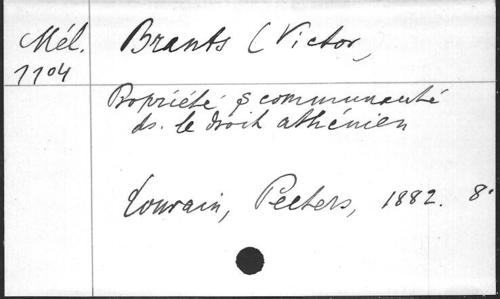 Mél.
1104
Brants (Victor,
Propriété & communauté
ds. le droit athénien
Louvain, Peeters, 1882. 8°